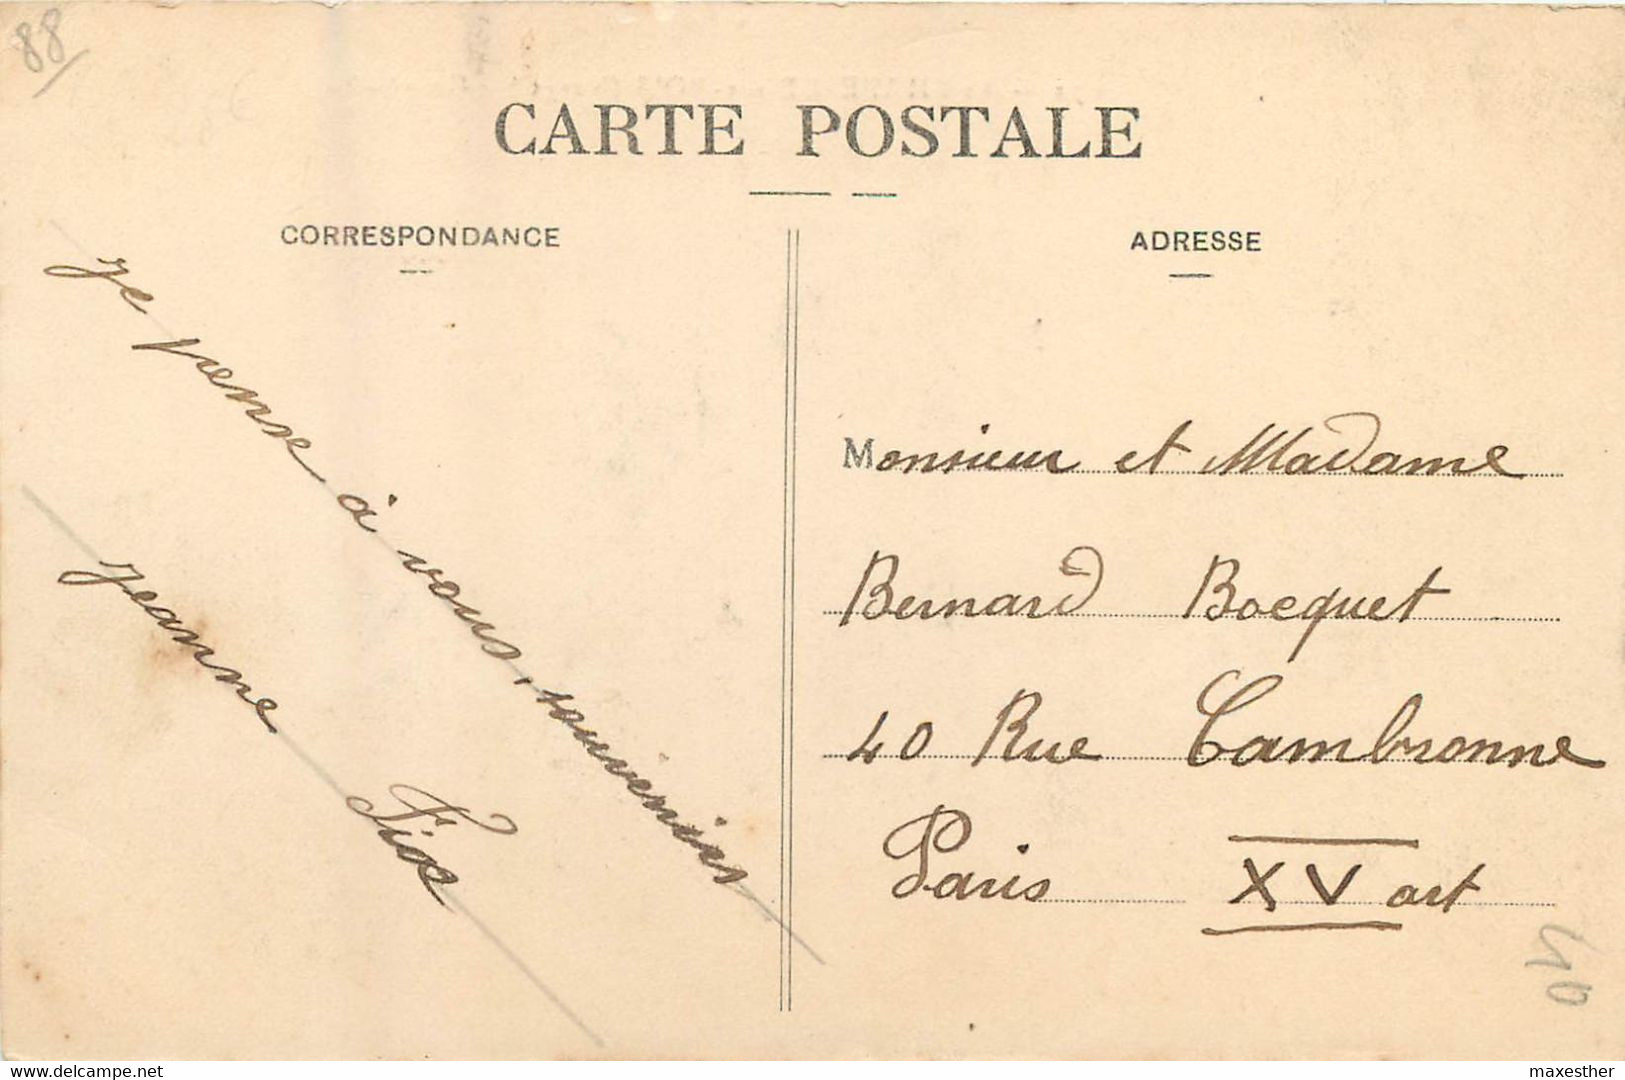 88
CARTE POSTALE
CORRESPONDANCE
ADRESSE
Je pense à vous, souvenirs
Jeanne
Monsieur et Madame
Bernard Bocquet
40 Rue Cambronne
Paris XV art
40
https://www.delcampe.net
maxesther